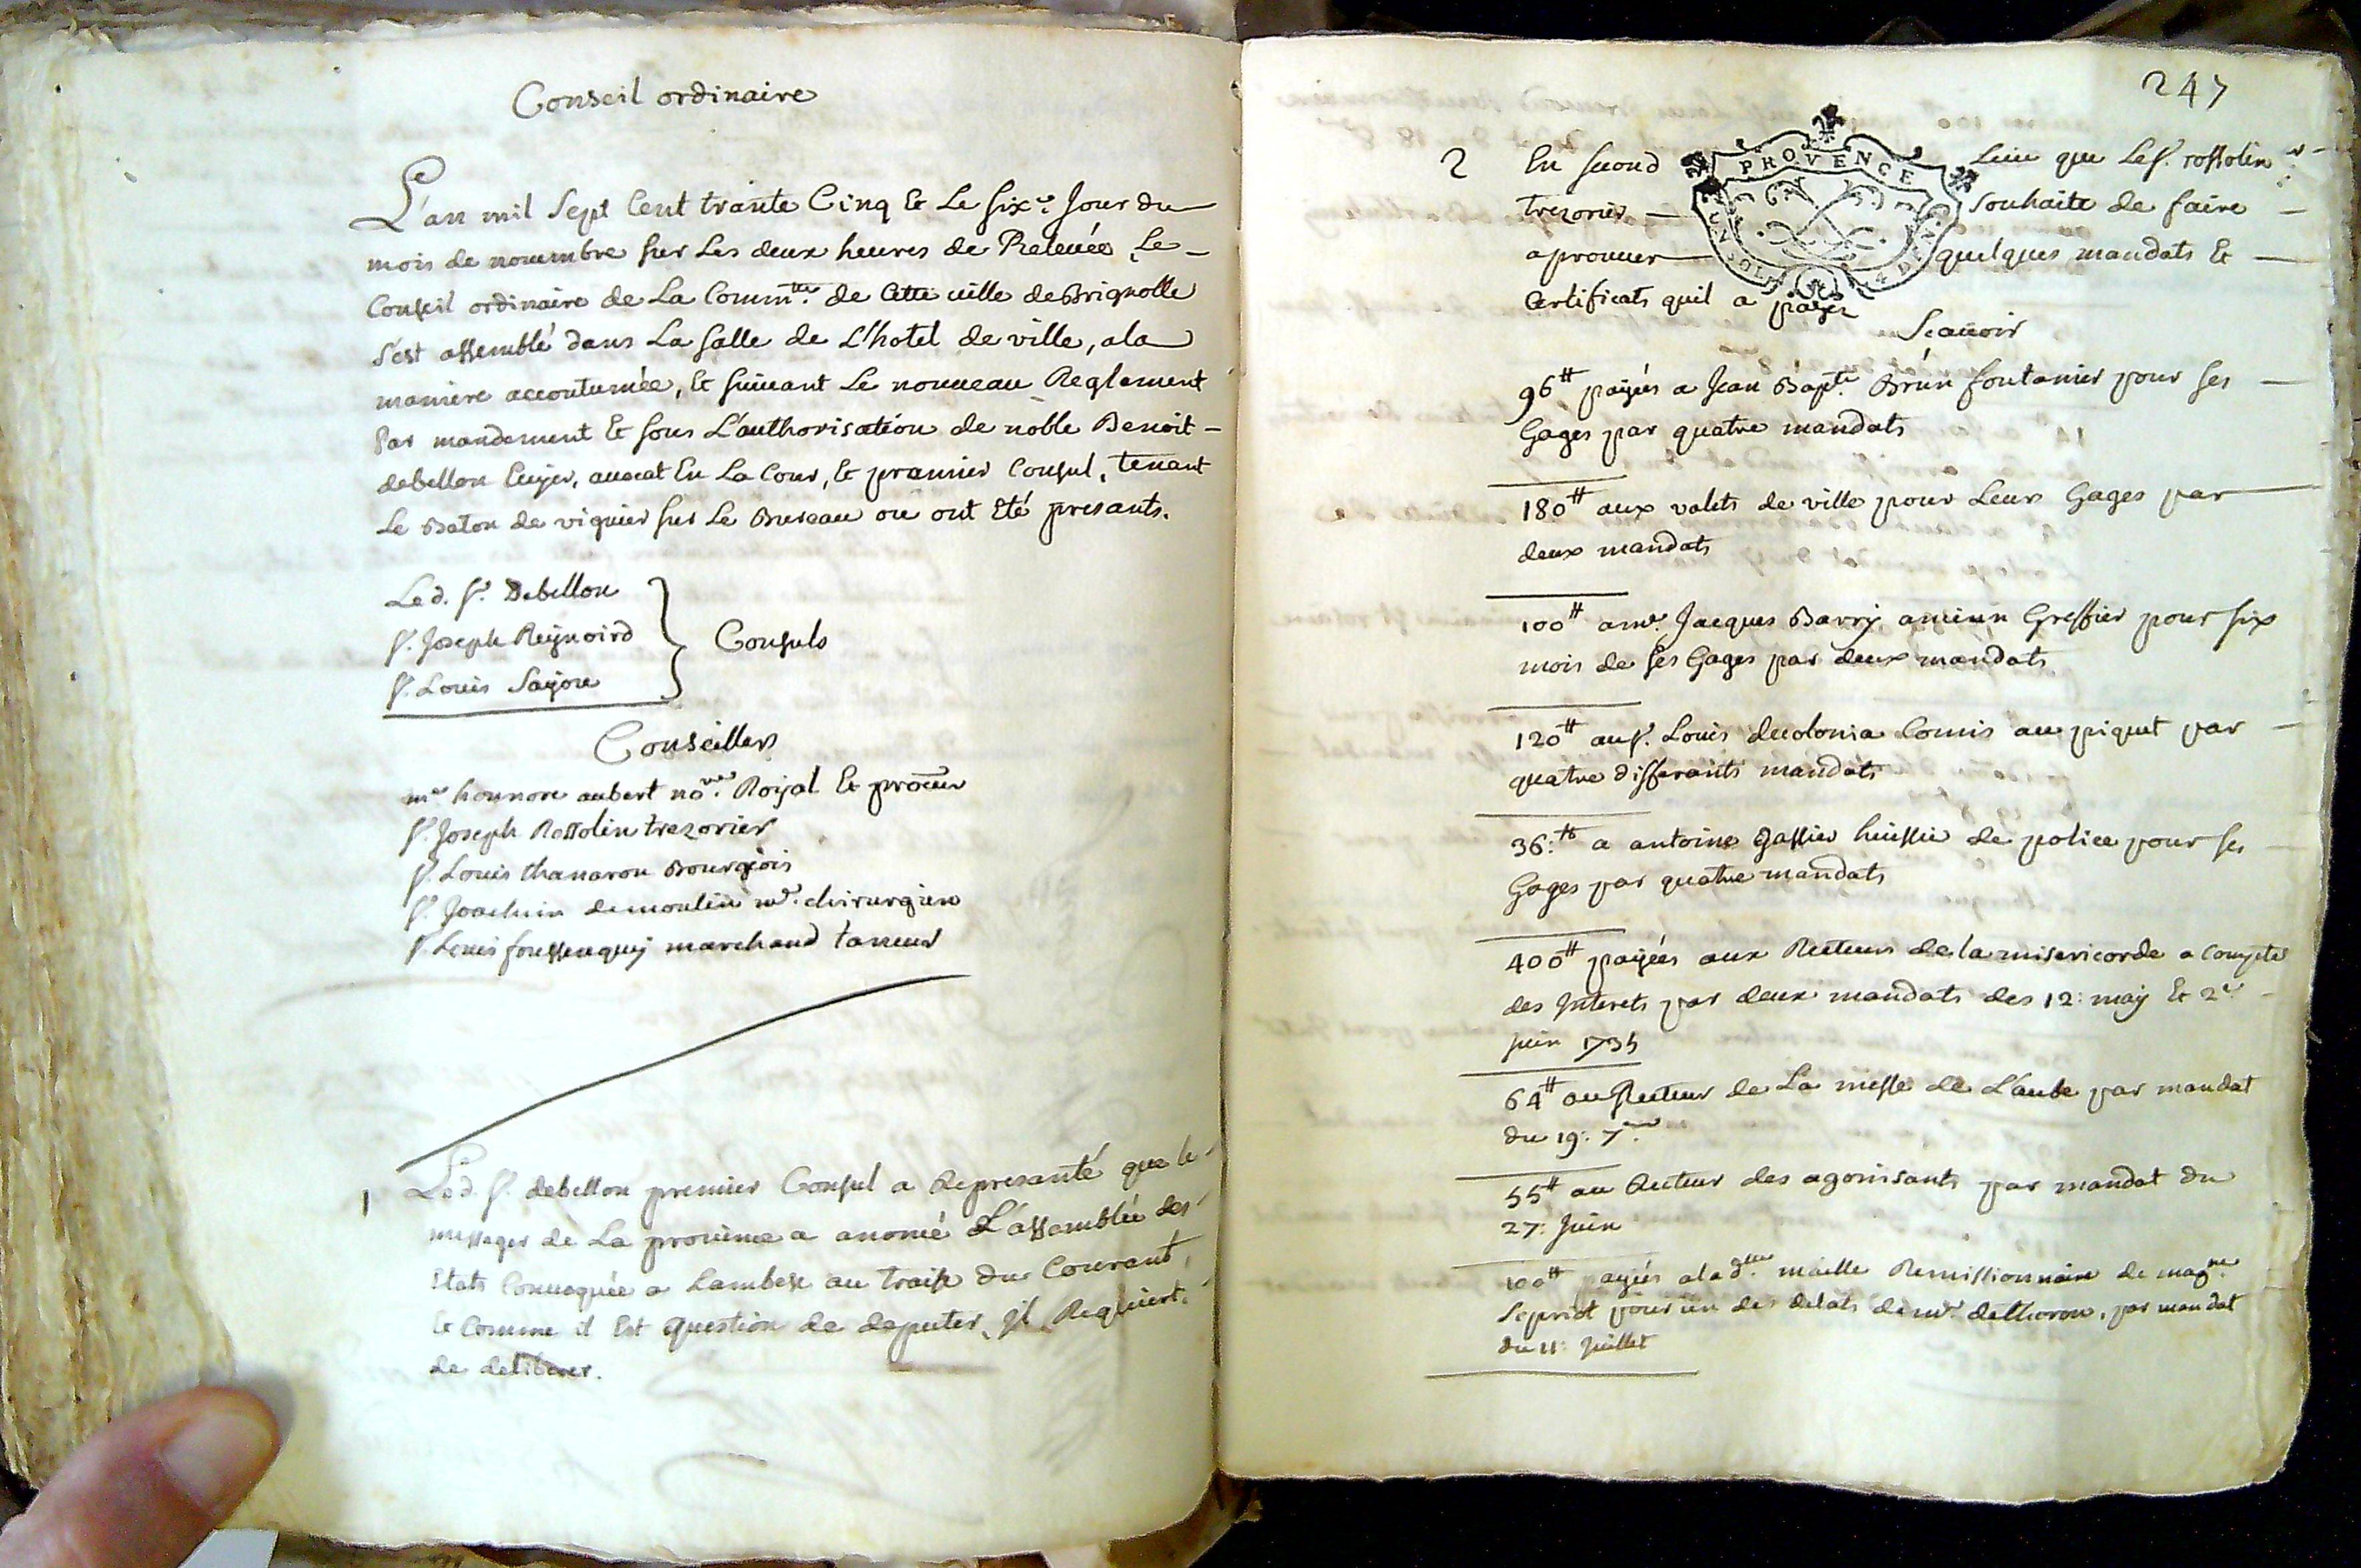 Conseil ordinaire
L'an mil Sept Cent trante Cinq et Le six.e Jour du
mois de nouembre sur Les deux heures de Releuée, Le
Conseil ordinaire de La Comm.té de Cette uille de Brignolle
s'est assemblé dans La salle de L'hotel de ville, a la
maniere accoutumée, et suiuant Le nouueau Reglement
par mandement et sous L'authorisation de noble Benoit
debellon Ecuyer, auocat En La Cour, et premier Consul, tenant
Le Baton de viguier sur Le Bureau ou ont Eté presants.
Led. s.r Debellon
s.r Joseph Reynoird
s.r Louis Sayou
Consuls
Conseillers
m.e honnore aubert no.re Royal et procur
s.r Joseph Rossolin trezorier
s.r Louis thanaron Bourgeois
s.r Joachin demoulin m.e chirurgien
s.r Louis foussenquy marchand taneur
1 Led. s.r debellon premier Consul a Represanté que le
messager de La prouince a anoncé L'assamblée des
Etats Conuoquée a Lambesc au traise du Courant,
et Comme il Est question de deputer, jl Requiert
de deliberer.
247
2 En second Lieu que Le s.r rossolin
PROVENCE
trezorier souhaite de faire
aprouuer quelques mandats et
UN SOL 4 DEN
Certificats quil a payer
Scauoir
96 ₶ payées a Jean Bapt.e Brun fontanier pour ses
Gages par quatre mandats
180 ₶ aux valets de ville pour Leurs Gages par
deux mandats
100 ₶ a m.e Jacques Barry ancien Greffier pour six
mois de ses Gages par deux mandats
120 ₶ au s.r Louis decolonia Comis au piquet par
quatre differants mandats
36: ₶ a antoine gassier huissier de police pour ses
Gages par quatre mandats
400 ₶ payées aux Recteurs de la misericorde a Compte
des Jnterets par deux mandats des 12: may et 2.e
juin 1735
64 ₶ au Recteur de La messe de L'aube par mandat
du 19: 7.bre
55 ₶ au Recteur des agonisants par mandat du
27: Juin
100 ₶ payées a la d.lle maille Remissionnaire de mag.ne
Seprist pour un des delats de m.r detthoron, par mandat
du 11: Juillet